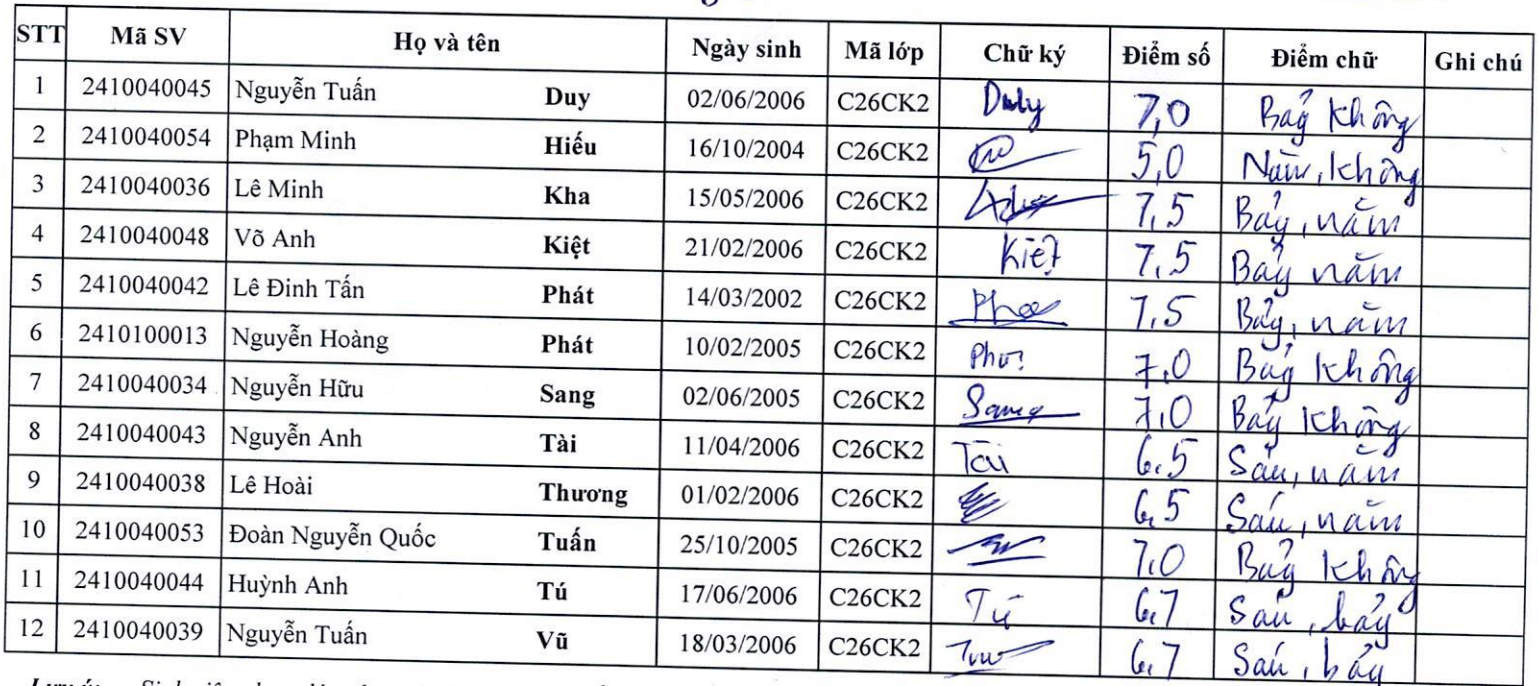 STT Mã SV Họ và tên Ngày sinh Mã lớp Chữ ký Điểm số Điểm chữ Ghi chú
1 2410040045 Nguyễn Tuấn Duy 02/06/2006 C26CK2 Duy 7,0 Bảy không
2 2410040054 Phạm Minh Hiếu 16/10/2004 C26CK2 5,0 Năm, không
3 2410040036 Lê Minh Kha 15/05/2006 C26CK2 7,5 Bảy, năm
4 2410040048 Võ Anh Kiệt 21/02/2006 C26CK2 Kiệt 7,5 Bảy năm
5 2410040042 Lê Đinh Tấn Phát 14/03/2002 C26CK2 7,5 Bảy, năm
6 2410100013 Nguyễn Hoàng Phát 10/02/2005 C26CK2 7,0 Bảy không
7 2410040034 Nguyễn Hữu Sang 02/06/2005 C26CK2 Sang 7,0 Bảy không
8 2410040043 Nguyễn Anh Tài 11/04/2006 C26CK2 Tài 6,5 Sáu, năm
9 2410040038 Lê Hoài Thương 01/02/2006 C26CK2 6,5 Sáu, năm
10 2410040053 Đoàn Nguyễn Quốc Tuấn 25/10/2005 C26CK2 7,0 Bảy không
11 2410040044 Huỳnh Anh Tú 17/06/2006 C26CK2 Tú 6,7 Sáu, bảy
12 2410040039 Nguyễn Tuấn Vũ 18/03/2006 C26CK2 6,7 Sáu, bảy